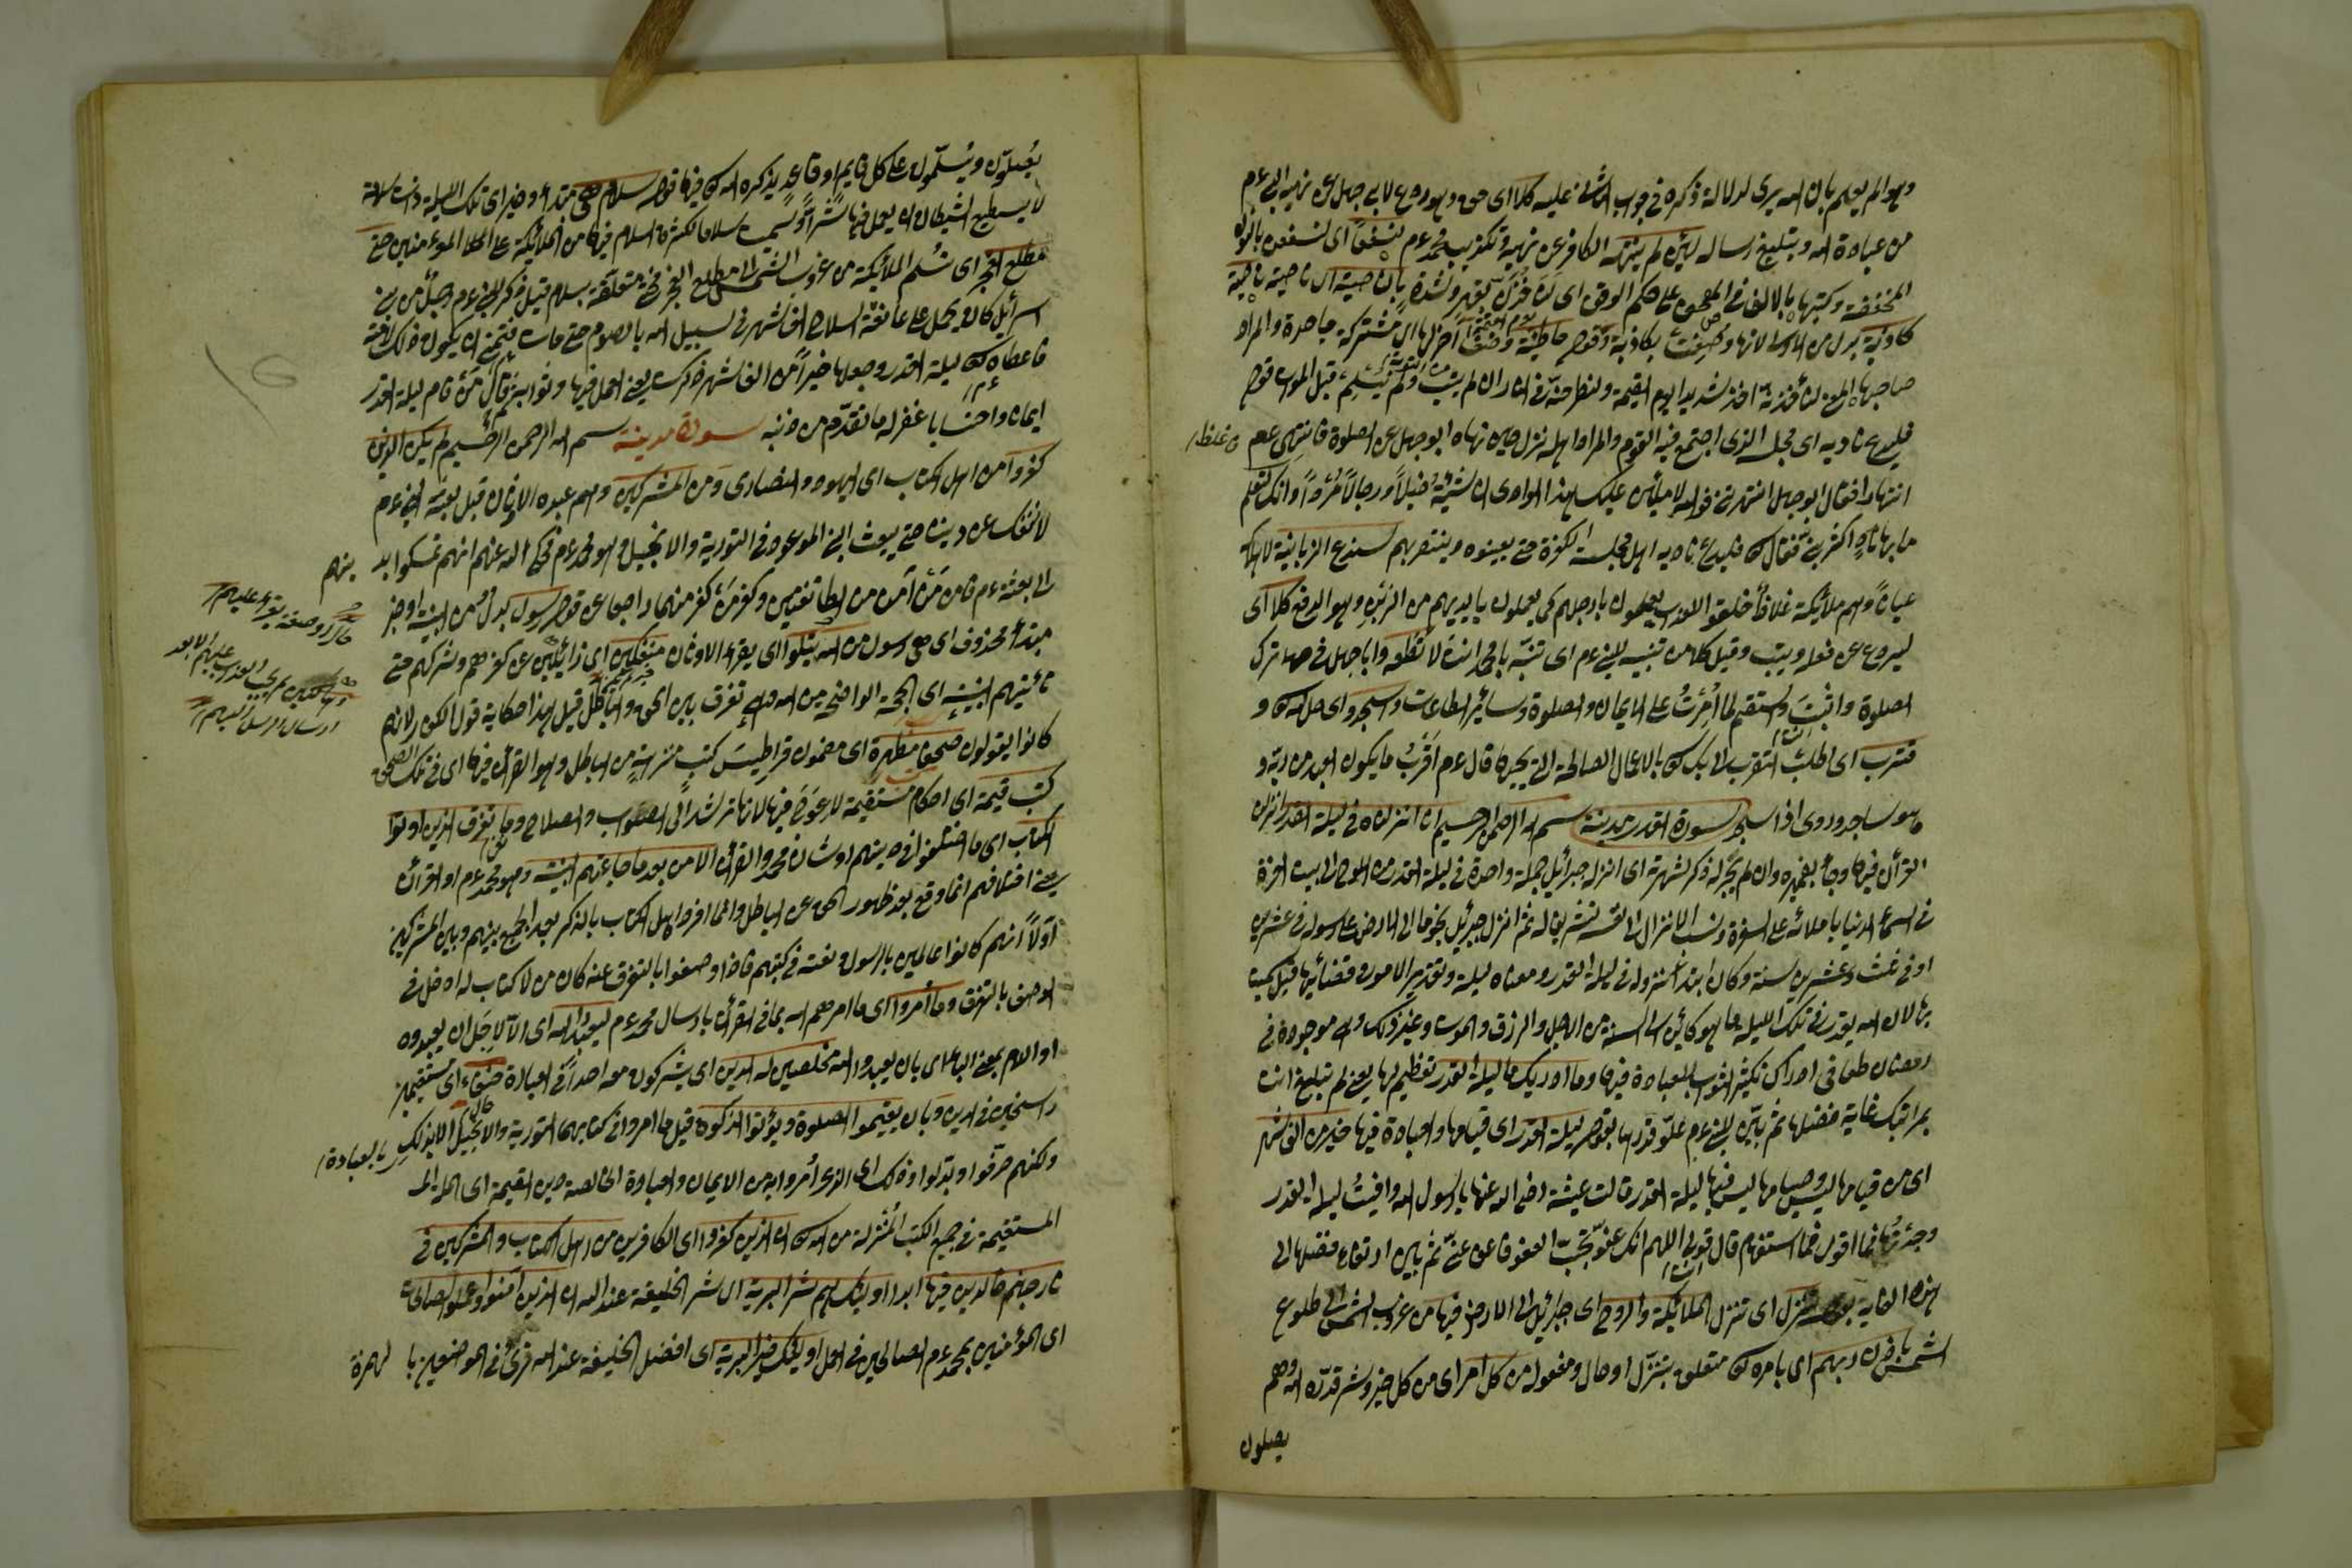 وهو الم يعلم بان الله يرى لدلالة ذكره في جواب الشرط عليه كلا اى حق وهو ردع لابى جهل عن نهيه النبى ءم
من عبادة الله وبتبليغ رساله لئن لم ينته الكافر عن نهيه وتكذيب محمد ءم لنسفعا اى لنسفعن بالنون
المخففة وكتبها بالالف في المصحف على حكم الوقف اى لنأخذن بقهر وشدة بالناصية ناصية
كاذبة بدل من الاولى لانها وصفت بكاذبة وقوله خاطئة والمراد
صاحبها المعنى لنأخذنه اخذ شديدا يوم القيمة ولنطرحنه في النار ان لم يتب ولم يسلم قبل الموت قوله
فليدع ناديه اى مجلسه الذى اجتمع فيه القوم والمراد اهله نزل حين نهاه ابو جهل عن الصلوة فانتهى عم
انتهارا فقال ابو جهل اتنهرنى فوالله لاملأن عليك هذا الوادى ان شئت خيلا ورجالا مردا وانك لتعلم
ما بها ناد اكثر منى فقال فليدع ناديه اهل مجلسه الكفرة حتى يعينوه وينتصر بهم سندع الزبانية لاهلاكه
عيانا وهم ملائكة غلاظ خلقوا للعذاب يعملون بارجلهم كما يعملون بايديهم من الزبن وهو الدفع كلا اى
ليردع عن فعله ويتب وقيل كلا من تنبيه للنبى ءم اى تنبه يا محمد انت لا تطعه وابا جهل في ترك
الصلوة واثبت واستقم لما امرت على الايمان والصلوة وسائر الطاعات واسجد اى صل لله و
قترب اى اطلب التقرب الى ربك بالاعمال الصالحة التى يحبها قال ءم اقرب ما يكون العبد من ربه و
هو ساجد وروى اذا سجد سورة القدر مدينة بسم الله الرحمن الرحيم انا انزلناه في ليلة القدر انزلنا
القرآن فيها وجاء بضميره وان لم يجر له ذكر لشهرته اى انزله جبرائيل جملة واحدة في ليلة القدر من اللوح الى بيت العزة
في السماء الدنيا باملائه على السفرة ونسب الانزال الى نفسه تشريفا له ثم انزل جبرئيل نجوما الى الارض على رسوله في عشرين
او في ثلث وعشرين سنة وكان ابتداء نزوله في ليلة القدر ومعناه ليلة وتقدير الامور وقضائها قيل سميت
بها لان الله يقدر في تلك الليلة ما هو كائن الى السنة من الاجل والرزق والموت وغير ذلك وهى موجودة في
رمضان طمعا في ادراك تكثير الثواب بالعبادة فيها وما ادريك ما ليلة القدر تعظيم لها يعنى لم تبلغ انت
بمراتبك غاية فضلها ثم بين للنبى ءم علو قدرها بقوله ليلة القدر اى قيامها والعبادة فيها خير من الف شهر
اى من قيامها وصيامها ليس فيها ليلة القدر قالت عيشة رضى الله عنها يا رسول الله وافيت ليلة القدر
وجدتها فما اقول فما استفهام قال قولى اللهم انك عفو تحب العفو فاعف عنى ثم بين ارتفاع فضلها الى
هذه الغاية بقوله تنزل اى تنزل الملائكة والروح اى جبرائيل الى الارض فيها من غروب الشمس الى طلوع
الشمس باذن ربهم اى بامره متعلق بتنزل او حال ومفعول من كل امر اى من كل خير وشر قدره الله وهم
يصلون
يصلون ويسلمون على كل قايم او قاعد يذكره الله فيها قوله سلام هى مبتدأ وخبر اى تلك الليلة ذات سلامة
لا يستطيع الشيطان ان يعمل فيها شرا وسميت سلاما لكثرة السلام فيها من الملائكة على المؤمنين حتى
مطلع الفجر اى تسلم الملائكة من غروب الشمس الى مطلع الفجر فحتى متعلقة بسلام قيل ذكر للنبى ءم رجل من بنى
اسرائيل كان يحمل على عاتقه السلاح الف شهر في سبيل الله بالصوم حتى مات فتمنى ان يكون ذلك لامته
فاعطاه ليلة القدر وجعلها خيرا من الف شهر يعنى العمل فيها وثوابه ثم قال من قام ليلة القدر
ايمانا واحتسابا غفر له ما تقدم من ذنبه سورة مدينة بسم الله الرحمن الرحيم لم يكن الذين
كفروا من اهل الكتاب اى اليهود والنصارى ومن المشركين وهم عبدة الاوثان قبل بعثة النبى ءم
لا ننفك عن ديننا حتى يبعث النبى الموعود في التورية والانجيل وهو محمد ءم فحكى الله عنهم انهم تمسكوا بد ينهم
الى بعثه ءم فامن من آمن من الطائفتين وكفر من كفر منهما راجعا عن قوله رسول بدل من البينة او خبر
مبتدأ محذوف اى هى رسول من الله يتلوا اى يقرء الاوثان منفكين اى زائلين عن كفرهم وشركهم حتى
تأتيهم البينة اى الحجة الواضحة من الله وهى تفرق بين الحق والباطل قيل هذا حكاية قول الكفار لانهم
كانوا يقولون صحفا مطهرة اى مضمون قراطيس كتب منزهة من الباطل وهو القرآن فيها اى في تلك الصحف
كتب قيمة اى احكام مستقيمة لا عوج فيها لانها ترشد الى الصواب والصلاح وما تفرق الذين اوتوا
الكتاب اى ما اختلفوا في دينهم وشان محمد والقرآن الا من بعد ما جاءتهم البينة وهو محمد ءم او القرآن
يعنى اختلافهم انما وقع بعد ظهور الحق عن الباطل وانما افرد اهل الكتاب بالذكر بعد الجمع بينهم وبين المشركين
اولا انهم كانوا عالمين بالرسول ونعته في كتبهم فاذا وصفوا بالتفرق عنه كان من لا كتاب له ادخل في
الوصف بالتفرق وما أمروا اى ما امرهم الله بما في القرآن بارسال محمد ءم ليعبدوا الله اى الا لاجل ان يعبدوه
او اللام بمعنى الباء اى بان يعبدوا الله مخلصين له الدين اى يشركون معه احدا في العبادة حنفاء اى مستقيمين
راسخين في الدين وبان يقيموا الصلوة ويؤتوا الزكوة قيل ما امروا في كتابهما التورية والانجيل الا بذلك بالعبادة
ولكنهم حرفوا وبدلوا وذلك اى الذى أمروا به من الايمان والعبادة الخالصة دين القيمة اى الملة
المستقيمة في جميع الكتب المنزلة من الله ان الذين كفروا اى الكافرين من اهل الكتاب والمشركين في
نار جهنم خالدين فيها ابدا اولئك هم شر البرية اى شر الخليقة عند الله ان الذين آمنوا وعملوا الصالحات
اى المؤمنين بمحمد ءم الصالحين في العمل اولئك خير البرية اى افضل الخليقة عند الله قرئ في الموضعين با لهمزة